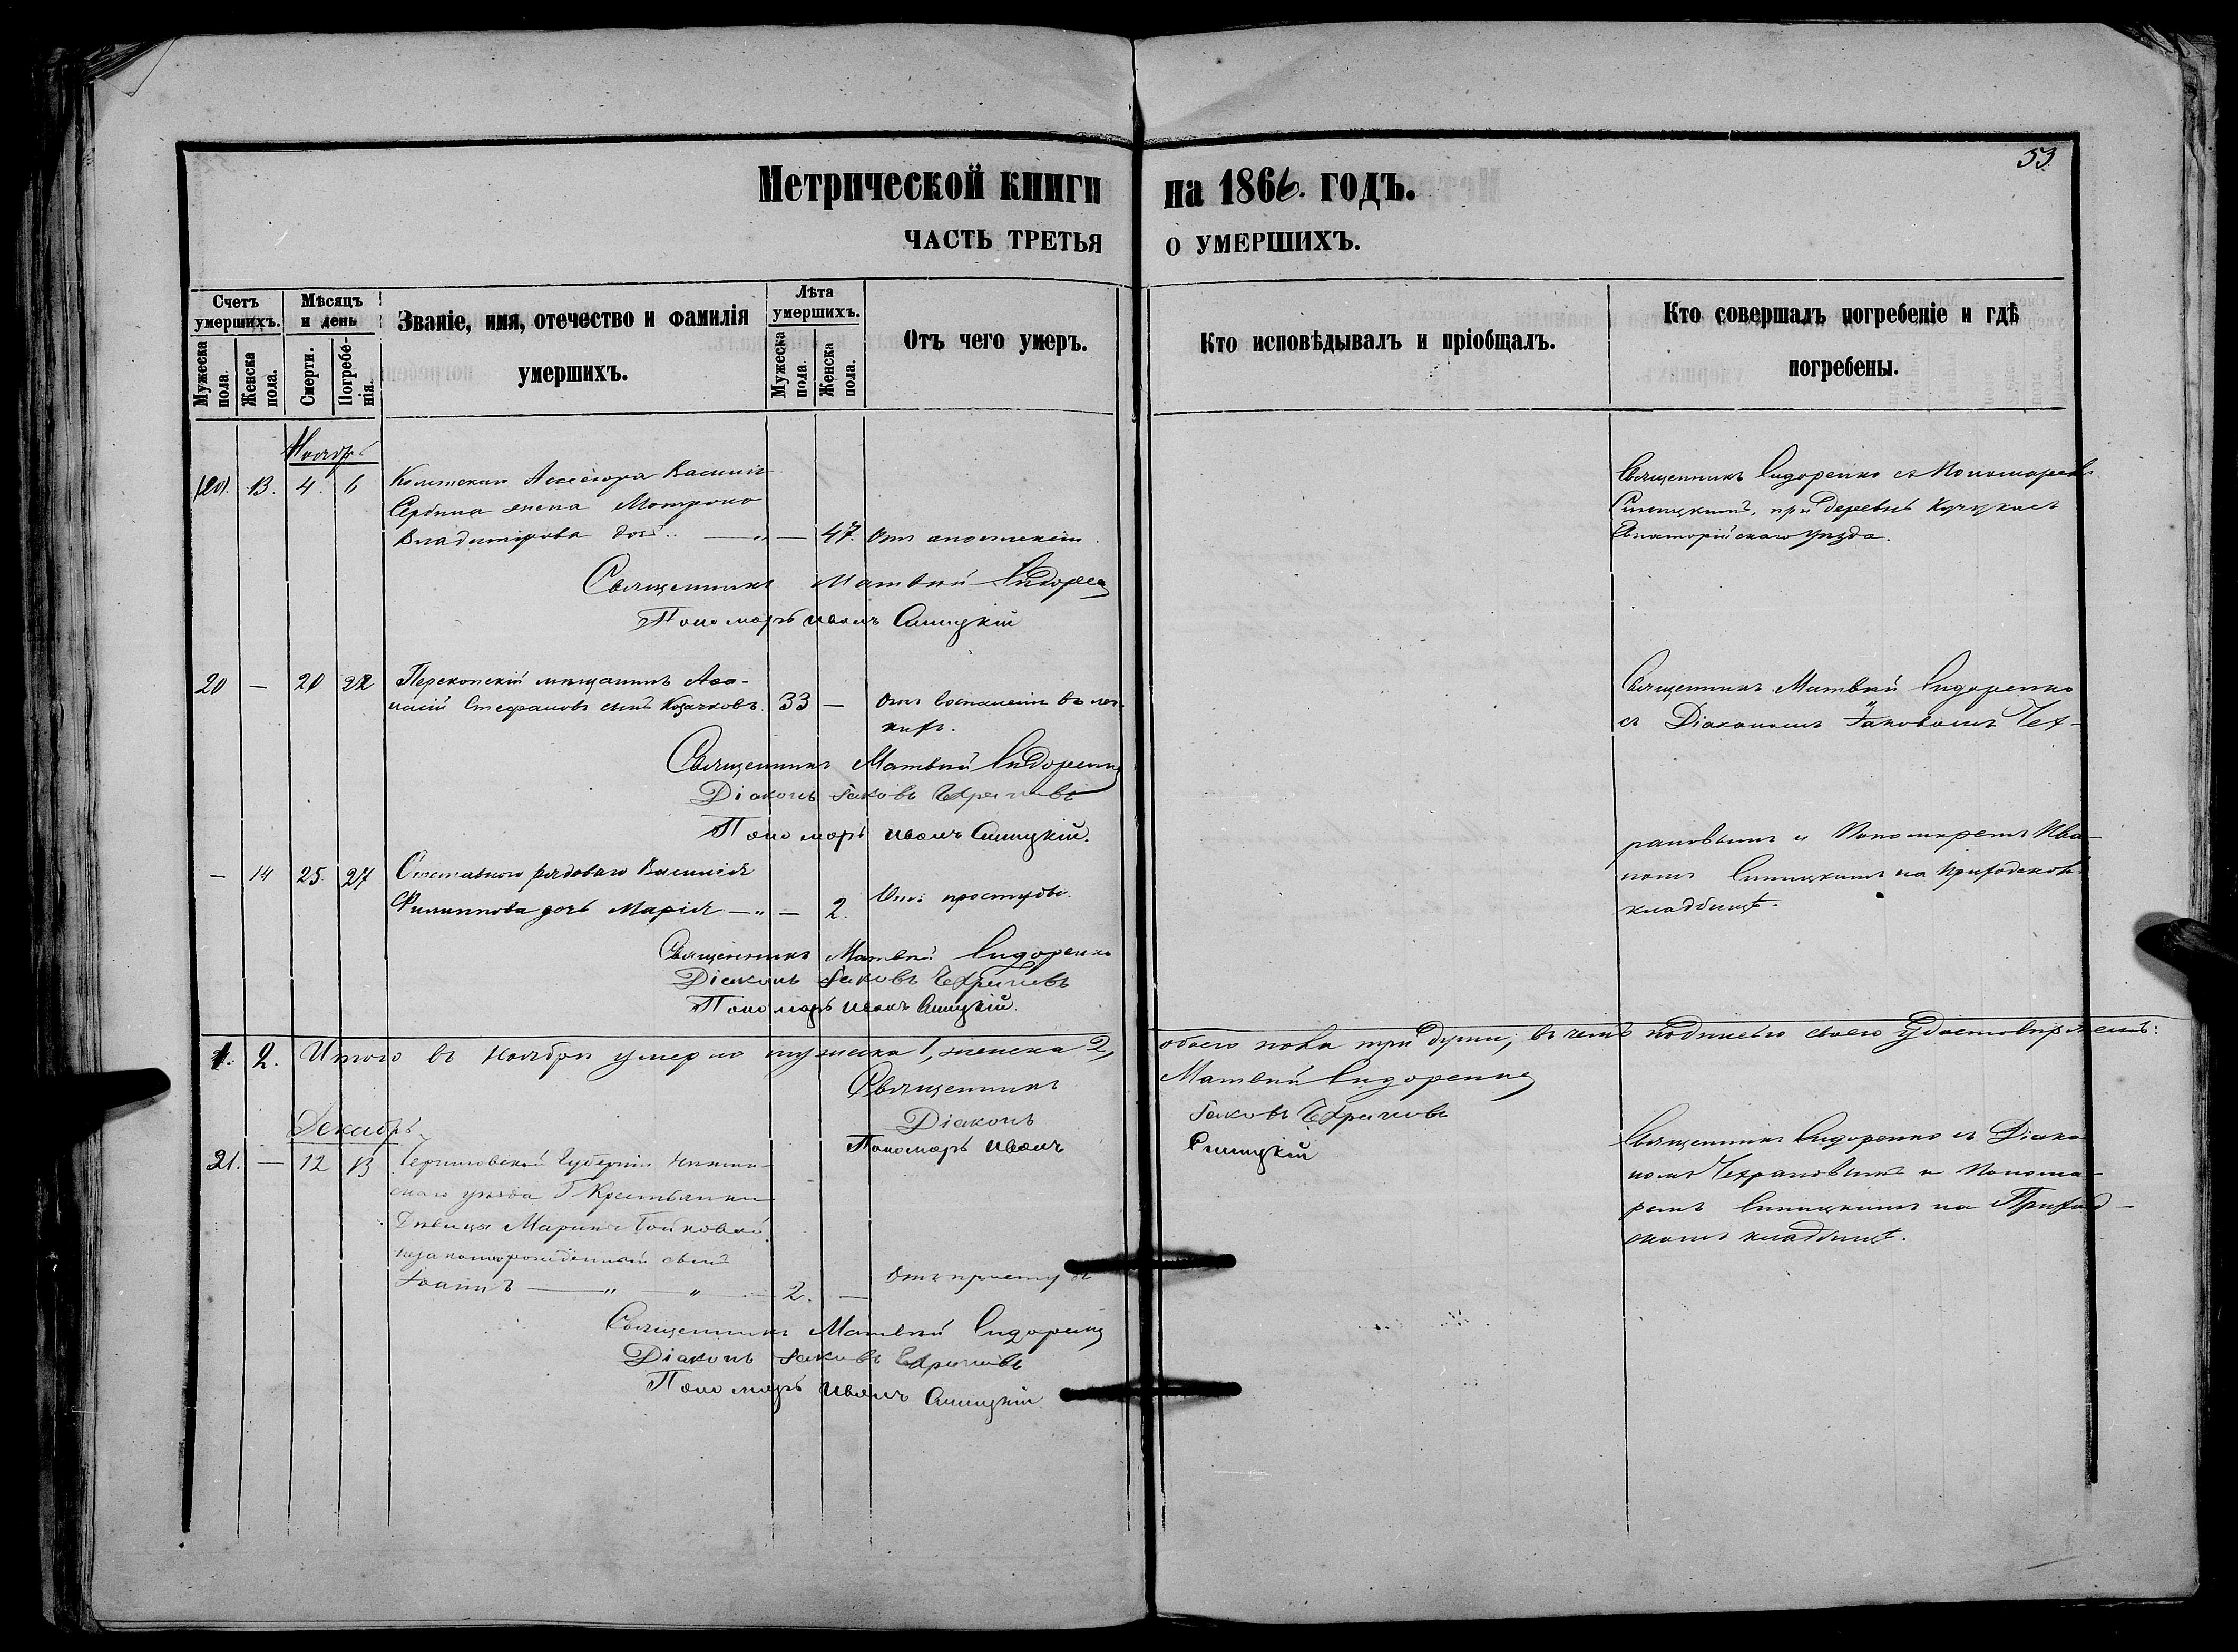 53.
Метрической книги на 1866. годъ.
ЧАСТЬ ТРЕТЬЯ О УМЕРШИХЪ.
Счетъ умершихъ.
Мужеска пола.
Женска пола.
Мѣсяцъ и день
Смерти.
Погребенія.
Званіе, имя, отечество и фамилія умершихъ.
Лѣта умершихъ.
Мужеска пола.
Женска пола.
Отъ чего умеръ.
Кто исповѣдывалъ и пріобщалъ.
Кто совершалъ погребеніе и гдѣ погребены.
Ноябрь
13. 4. 6 Ассесора Василія
Сербина жена Матрона
Владимірова — „ — 47. Отъ
Священникъ Сидоренко съ Пономаремъ
Синицкимъ, при деревнѣ
Евпаторійскаго уѣзда.
Священникъ Матвѣй Сидоренко
Пономарь Иванъ Синицкій
20 — 20 22 Перекопскій мѣщанинъ Аѳа-
насій Стефановъ сынъ Козачковъ. 33 — Отъ воспаленія въ лег-
кихъ.
Священникъ Матвѣй Сидоренко
съ Діакономъ Іаковомъ Чех-
Священникъ Матвѣй Сидоренко
Діаконъ Іаковъ Чехрановъ
Пономарь Иванъ Синицкій.
рановымъ и Пономаремъ Ива-
номъ Синицкимъ на Приходскомъ
кладбищѣ.
— 14 25. 27 Отставнаго рядоваго Василія
Филиппова дочь Марія — „ — 2. Отъ простуды.
Священникъ Матвѣй Сидоренко
Діаконъ Іаковъ Чехрановъ
Пономарь Иванъ Синицкій.
1. 2. Итого въ Ноябрѣ умерло мужеска 1, женска 2, обоего пола три души; въ чемъ подписью своею удостовѣряемъ:
Священникъ Матвѣй Сидоренко
Діаконъ Іаковъ Чехрановъ
Пономарь Иванъ Синицкій
Декабрь
21. — 12 13 Черниговской Губерніи
скаго уѣзда Крестьянки
Дѣвицы Марины Бойковой
незаконнорожденный сынъ
Іоаннъ — „ — „ — 2. — Отъ простуды
Священникъ Сидоренко съ Діако-
номъ Чехрановымъ и Понома-
ремъ Синицкимъ на Приход-
скомъ кладбищѣ.
Священникъ Матвѣй Сидоренко
Діаконъ Іаковъ Чехрановъ
Пономарь Иванъ Синицкій